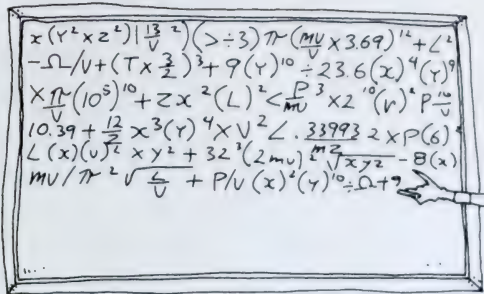 x(Y²×z²)|13/v ²)(>÷3)πr(mv/v×3.69)¹²+L²
-Ω/v+(T×3/2)³+9(Y)¹⁰÷23.6(x)⁴(Y)⁹
×π/v(10⁵)¹⁰+zx²(L)²<P/mv³×2¹⁰(r)²P 10/v
10.39+12/z x³(Y)⁴×V²∠.33993/mz 2×P(6)²
∠(x)(v)²×y²+32³(2mv)²√xyz-8(x)
mv/πr²√L/v+P/v(x)²(y)¹⁰÷Ω+9